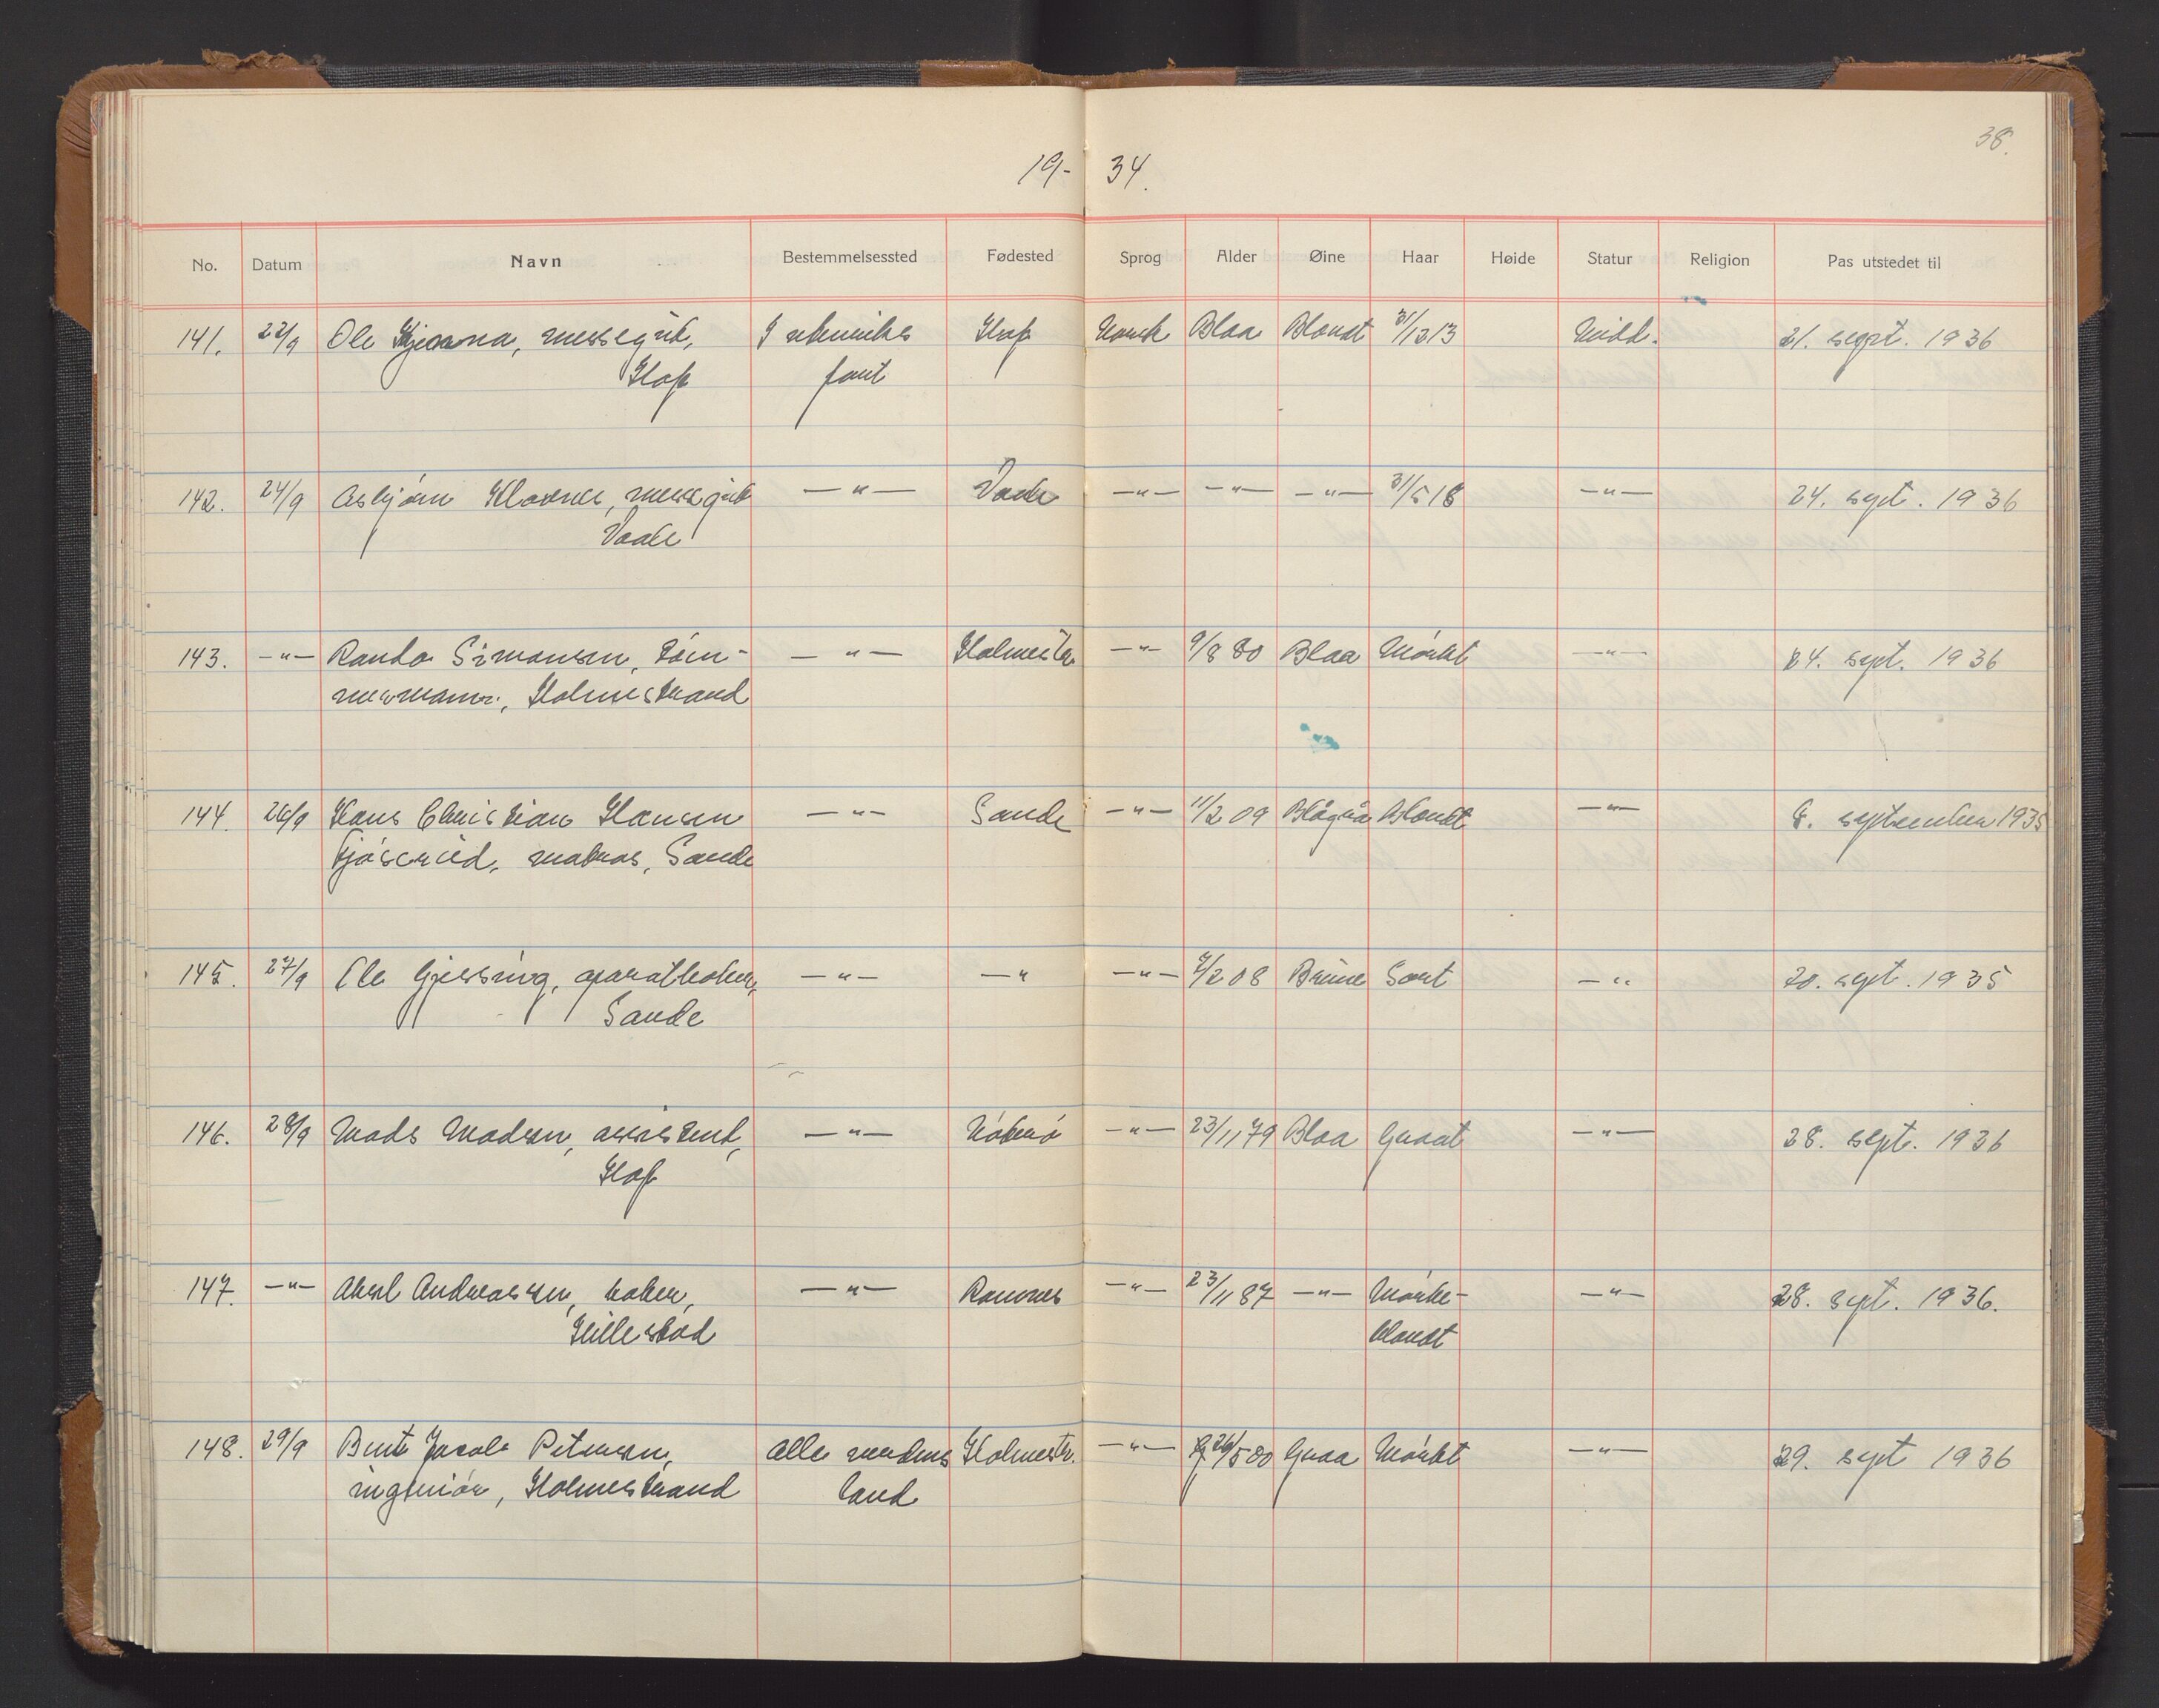 38.
19- 34.
No. Datum Navn Bestemmelsessted Fødested Sprog Alder Øine Haar Høide Statur Religion Pas utstedet til
141. 22/9 Ole Kjeona, messegut, I utenriks Hof Norsk Blaa Blondt 31/12 13 Midd. 21. sept. 1936
Hof fart
142. 24/9 Asbjørn Klovnes, messegut —"— Vaale —"— —"— —"— 31/5 18 —"— 24. sept. 1936
Vaale
143. —"— Simonsen, tøm- —"— Holmestr. —"— 9/8 80 Blaa Mørkt —"— 24. sept. 1936
mermann, Holmestrand
144. 26/9 Hans Christian Hansen —"— Sande —"— 11/2 09 Blågrå Blondt —"— 8. september 1935
matros, Sande
145. 27/9 Ole Gjessing, aparatkoker, —"— —"— —"— 7/2 08 Brune Sort —"— 20. sept. 1935
Sande
146. 28/9 Mads Madsen, assistent, —"— Nøterø —"— 23/11 79 Blaa Graat —"— 28. sept. 1936
Hof
147. —"— Aksel Andreassen, koker, —"— Ramnes —"— 23/11 87 —"— Mørke- —"— 28. sept. 1936.
Hillestad blondt
148. 29/9 Bernt Jacob Petersen, alle verdens Holmestr. —"— 26/5 80 Graa Mørkt —"— 29. sept 1936
ingeniør, Holmestrand land